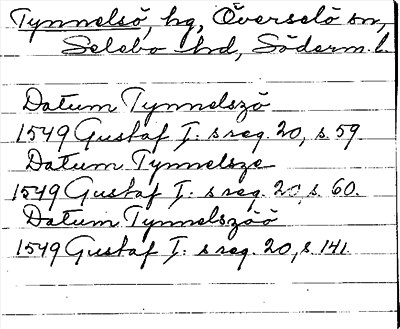 Tynnelsö, hg, Överselö sn,
Selebo hd, Söderm. l.
Datum Tynnelszö
1549 Gustaf I: s reg. 20, s. 59
Datum Tynnelsze
1549 Gustaf I: s reg. 20, s. 60.
Datum Tynnelszöö
1549 Gustaf I: s reg. 20, s. 141.